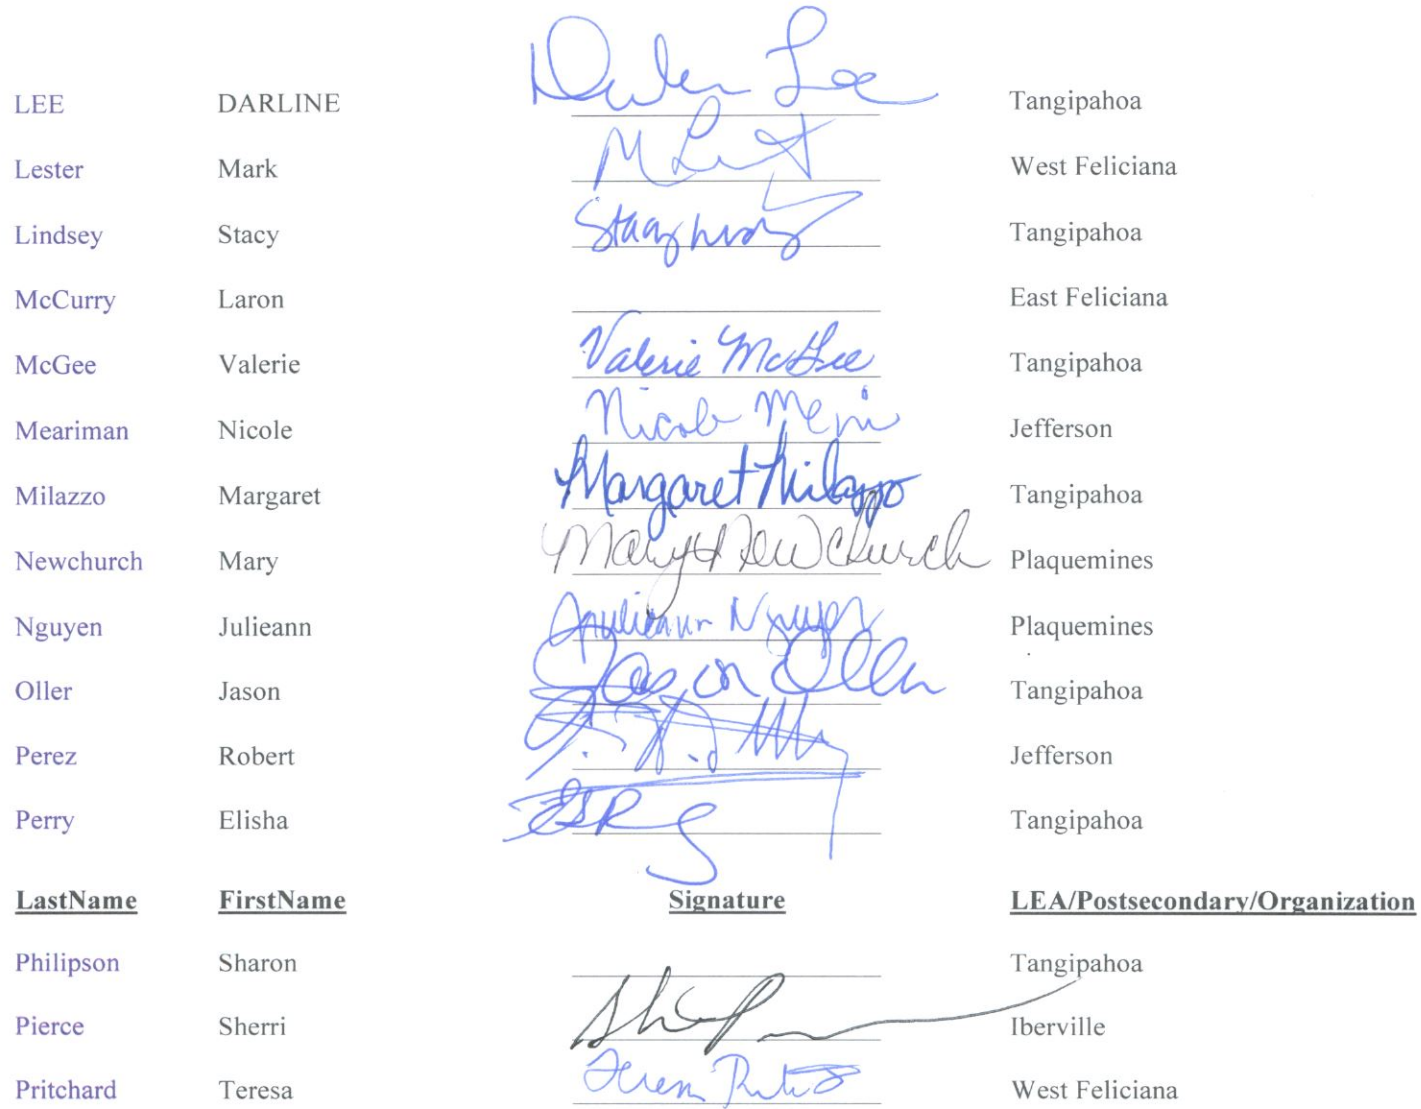 LEE DARLINE Lee Tangipahoa
Lester Mark M West Feliciana
Lindsey Stacy Stacy Tangipahoa
McCurry Laron East Feliciana
McGee Valerie Valerie McGee Tangipahoa
Meariman Nicole Nicole Jefferson
Milazzo Margaret Margaret Milazzo Tangipahoa
Newchurch Mary Mary Newchurch Plaquemines
Nguyen Julieann Julieann Nguyen Plaquemines
Oller Jason Jason Oller Tangipahoa
Perez Robert Jefferson
Perry Elisha Tangipahoa
LastName FirstName Signature LEA/Postsecondary/Organization
Philipson Sharon Tangipahoa
Pierce Sherri Iberville
Pritchard Teresa West Feliciana